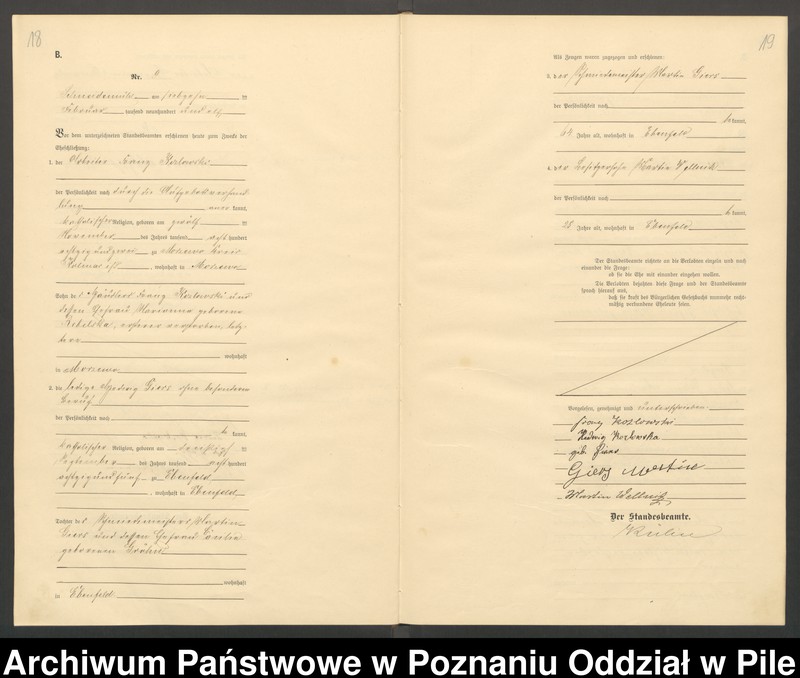 18
B.
Nr.
Schneidemühl am
Februar tausend neunhundert und elf
Vor dem unterzeichneten Standesbeamten erschienen heute zum Zweck der
Eheschließung:
1. der Arbeiter Franz Kozlowski
der Persönlichkeit nach durch die Aufgebotsverhand
lung aner kannt,
katholischer Religion, geboren am zwölf ten
November des Jahres tausend acht hundert
achtzig und zwei zu Kreis
Kolmar i/P., wohnhaft in
Sohn des Händlers Franz Kozlowski und
dessen Ehefrau Marianna geborene
wohnhaft
in
2. die ledige Hedwig Giers ohne besonderen
Beruf
der Persönlichkeit nach
be kannt,
katholischer Religion, geboren am ten
September des Jahres tausend acht hundert
achtzig und fünf zu Ebenfeld
, wohnhaft in Ebenfeld
Tochter des Schmiedemeisters Martin
Giers und dessen Ehefrau
geborenen
wohnhaft
in Ebenfeld
19
Als Zeugen waren zugezogen und erschienen:
3. der Schmiedemeister Martin Giers
der Persönlichkeit nach
be kannt,
64 Jahre alt, wohnhaft in Ebenfeld
4. der Besitzersohn Martin Wellnitz
der Persönlichkeit nach
be kannt,
28 Jahre alt, wohnhaft in Ebenfeld
Der Standesbeamte richtete an die Verlobten einzeln und nach
einander die Frage:
ob sie die Ehe mit einander eingehen wollen.
Die Verlobten bejahten diese Frage und der Standesbeamte
sprach hierauf aus,
daß sie kraft des Bürgerlichen Gesetzbuchs nunmehr recht-
mäßig verbundene Eheleute seien.
Vorgelesen, genehmigt und unterschrieben
Franz Kozlowski
Hedwig Kozlowska
geb. Giers
Giers Martin
Martin Wellnitz
Der Standesbeamte.
Archiwum Państwowe w Poznaniu Oddział w Pile